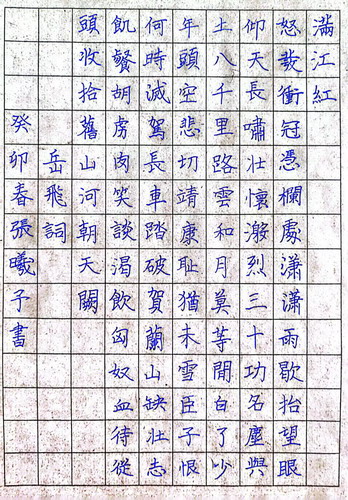 滿江紅
怒髮衝冠憑欄處瀟瀟雨歇抬望眼
仰天長嘯壯懷激烈三十功名塵與
土八千里路雲和月莫等閒白了少
年頭空悲切靖康恥猶未雪臣子恨
何時滅駕長車踏破賀蘭山缺壯志
飢餐胡虜肉笑談渴飲匈奴血待從
頭收拾舊山河朝天闕
岳飛詞
癸卯春張曦予書